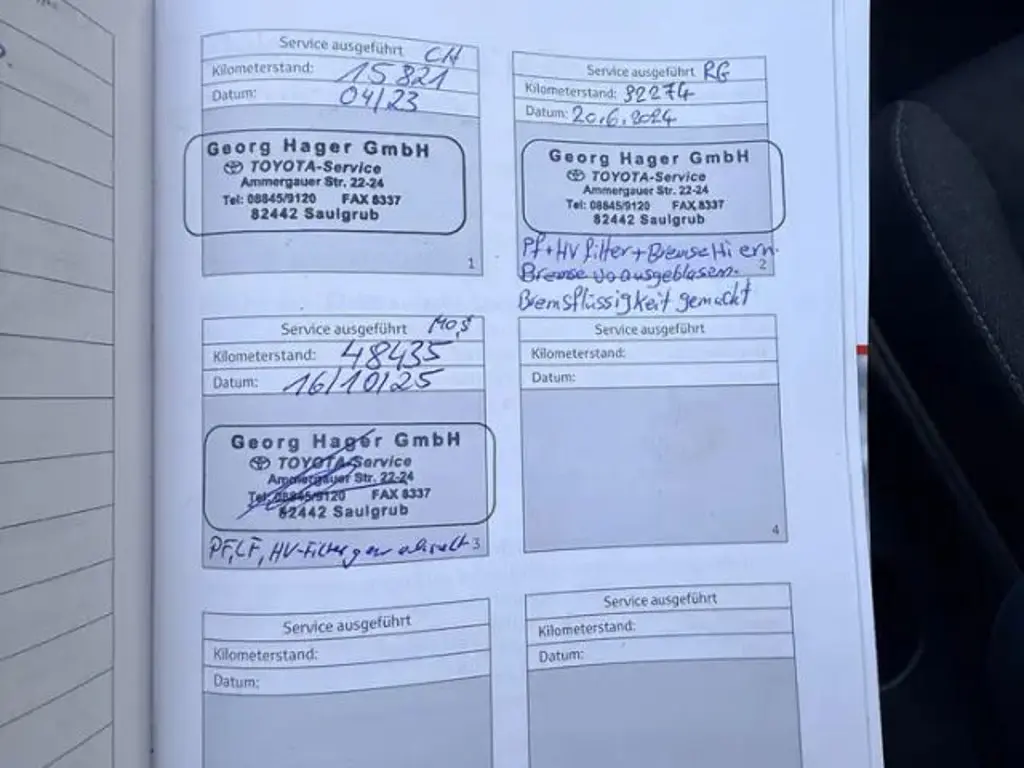 Service ausgeführt CH
Kilometerstand: 15821
Datum: 04/23
Georg Hager GmbH
TOYOTA-Service
Ammergauer Str. 22-24
Tel: 08845/9120 FAX 8337
82442 Saulgrub
1
Service ausgeführt RG
Kilometerstand: 32274
Datum: 20.6.2024
Georg Hager GmbH
TOYOTA-Service
Ammergauer Str. 22-24
Tel: 08845/9120 FAX 8337
82442 Saulgrub
Pf + HV filter + Bremse Hi ern.
Bremse vo ausgeblasen.
2
Bremsflüssigkeit gemacht
Service ausgeführt
Kilometerstand: 48435
Datum: 16/10/25
Georg Hager GmbH
TOYOTA-Service
Ammergauer Str. 22-24
Tel: 08845/9120 FAX 8337
82442 Saulgrub
PF, LF, HV-Filter
3
Service ausgeführt
Kilometerstand:
Datum:
4
Service ausgeführt
Kilometerstand:
Datum:
Service ausgeführt
Kilometerstand:
Datum: